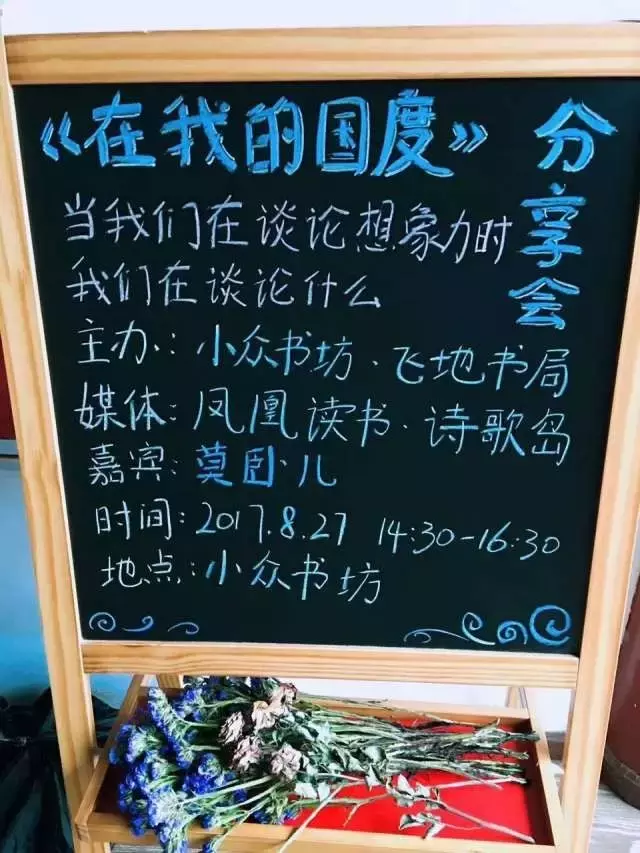 《在我的国度》分享会
当我们在谈论想象力时
我们在谈论什么
主办:小众书坊·飞地书局
媒体:凤凰读书·诗歌岛
嘉宾:莫卧儿
时间:2017.8.27 14:30-16:30
地点:小众书坊